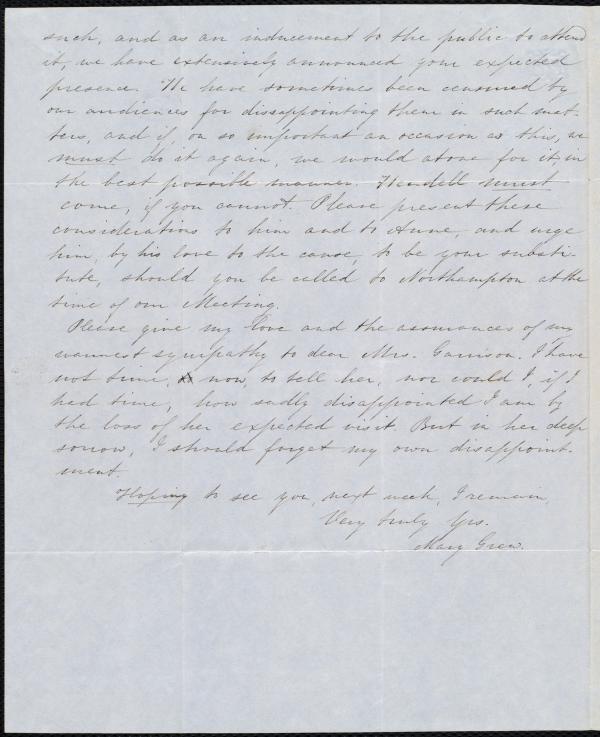 such, and as an inducement to the public to attend
it, we have extensively announced your expected
presence. We have sometimes been censured by
our audiences for dissappointing them in such mat-
ters, and if, on so important an occasion as this, we
must do it again, we would atone for it, in
the best possible manner. Wendell must
come, if you cannot. Please present these
considerations to him and to Anne, and urge
him, by his love to the cause, to be your substi-
tute, should you be called to Northampton at the
time of our Meeting.
Please give my love and the assurances of my
warmest sympathy to dear Mrs. Garrison. I have
not time, now, to tell her, nor could I, if I
had time, how sadly disappointed I am by
the loss of her expected visit. But in her deep
sorrow, I should forget my own disappoint-
ment.
Hoping to see you, next week, I remain,
Very truly Yrs.
Mary Grew.